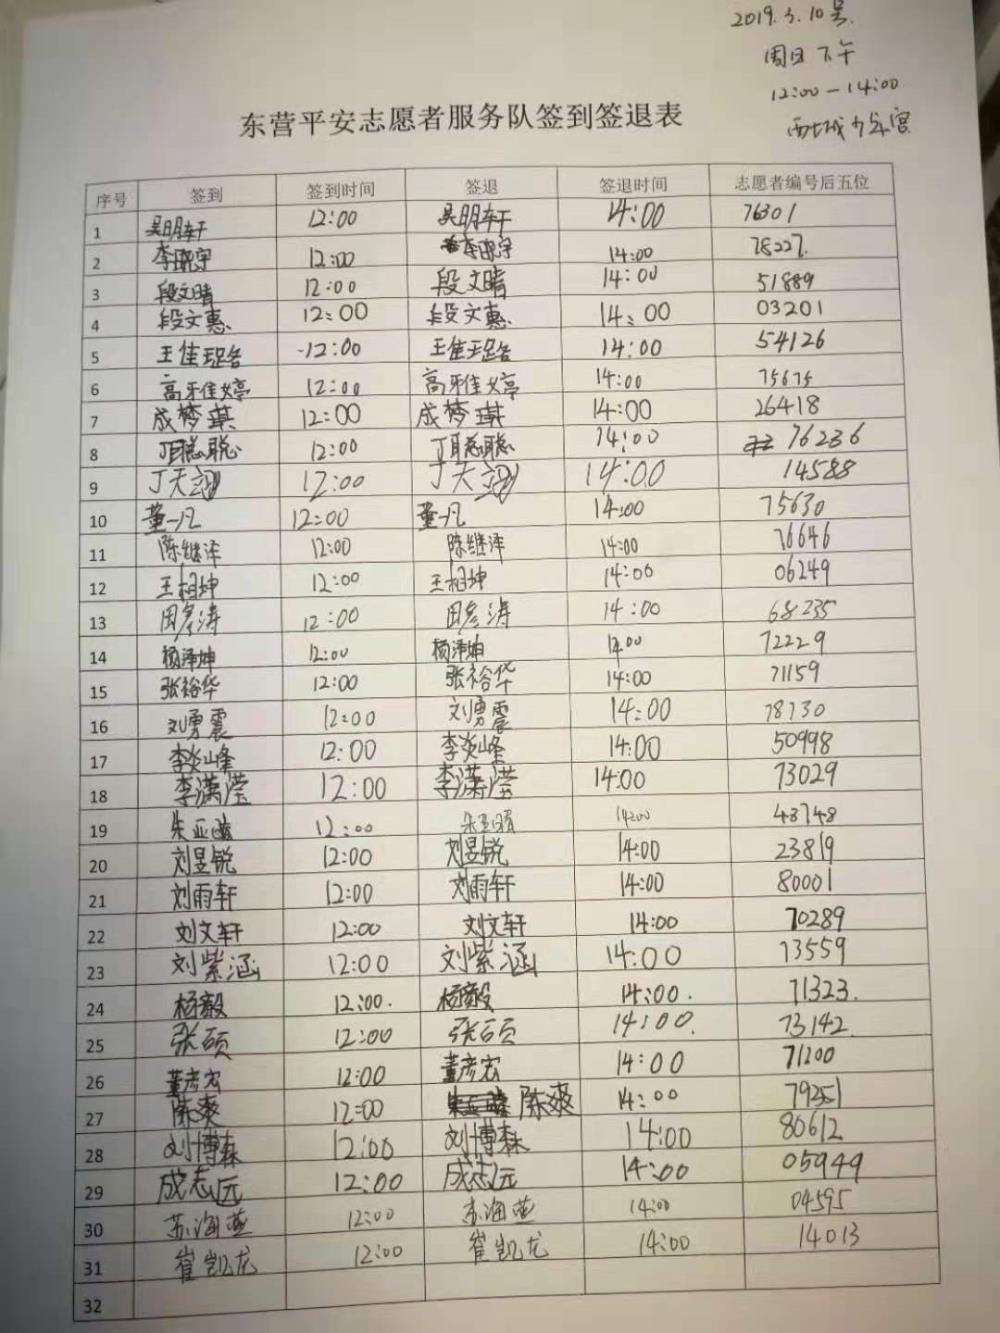 2019.3.10号.
周日下午
12:00—14:00
西城少年宫
东营平安志愿者服务队签到签退表
序号 签到 签到时间 签退 签退时间 志愿者编号后五位
1 吴明轩 12:00 吴明轩 14:00 76301
2 李晓宇 12:00 李晓宇 14:00 78227.
3 段文晴 12:00 段文晴 14:00 51889
4 段文惠 12:00 段文惠 14:00 03201
5 王佳瑶 12:00 王佳瑶 14:00 54126
6 高牙佳婷 12:00 高牙佳婷 14:00 75675
7 成梦琪 12:00 成梦琪 14:00 26418
8 丁聪聪 12:00 丁聪聪 14:00 76236
9 丁天翊 12:00 丁天翊 14:00 14588
10 董一凡 12:00 董一凡 14:00 75630
11 陈继泽 12:00 陈继泽 14:00 76646
12 王相坤 12:00 王相坤 14:00 06249
13 田彦涛 12:00 田彦涛 14:00 68235
14 杨泽坤 12:00 杨泽坤 14:00 72229
15 张裕华 12:00 张裕华 14:00 71159
16 刘勇震 12:00 刘勇震 14:00 78730
17 李炎峰 12:00 李炎峰 14:00 50998
18 李潇滢 12:00 李潇滢 14:00 73029
19 12:00 14:00 43748
20 刘昱锐 12:00 刘昱锐 14:00 23819
21 刘雨轩 12:00 刘雨轩 14:00 80001
22 刘文轩 12:00 刘文轩 14:00 70289
23 刘紫涵 12:00 刘紫涵 14:00 13559
24 杨毅 12:00. 杨毅 14:00. 71323.
25 张硕 12:00 张硕 14:00. 73142.
26 董彦宏 12:00 董彦宏 14:00 71200
27 陈爽 12:00 陈爽 14:00 79251
28 刘博森 12:00 刘博森 14:00 80612
29 成志远 12:00 成志远 14:00 05949
30 苏海燕 12:00 苏海燕 14:00 04595
31 崔凯龙 12:00 崔凯龙 14:00 14013
32